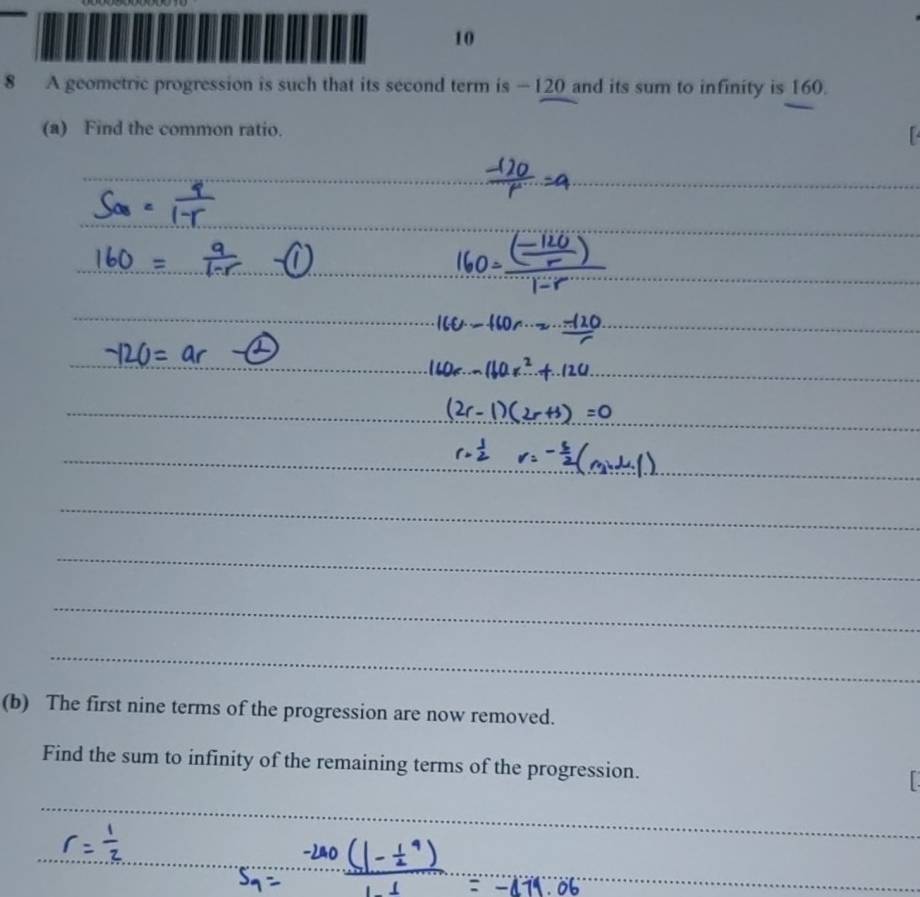 10
8 A geometric progression is such that its second term is −120 and its sum to infinity is 160.
(a) Find the common ratio.
S∞ = a/(1-r)
160 = a/(1-r) -①
-120 = ar -②
-120/r = a
160 = (-120/r)/(1-r)
160 - 160r = -120/r
160r - 160r² + 120
(2r-1)(2r+3) = 0
r = 1/2 r = -
(b) The first nine terms of the progression are now removed.
Find the sum to infinity of the remaining terms of the progression.
r = 1/2
S₉ = -240(1 - 1/2⁹)
= -479.06